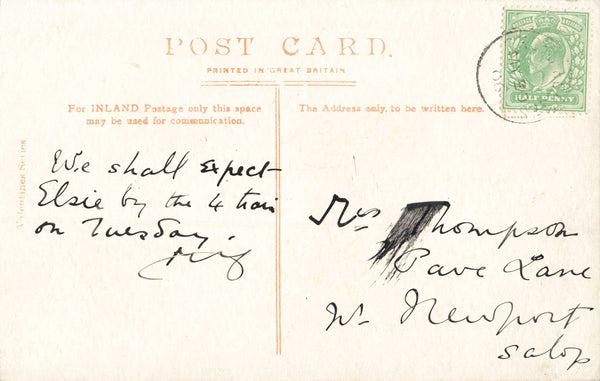 POST CARD.
PRINTED IN GREAT BRITAIN
For INLAND Postage only this space
may be used for communication.
The Address only, to be written here.
Valentines Series
HALF PENNY
We shall expect
Elsie by the 4 train
on Tuesday.
Mrs Thompson
Pave Lane
Nr. Newport
Salop